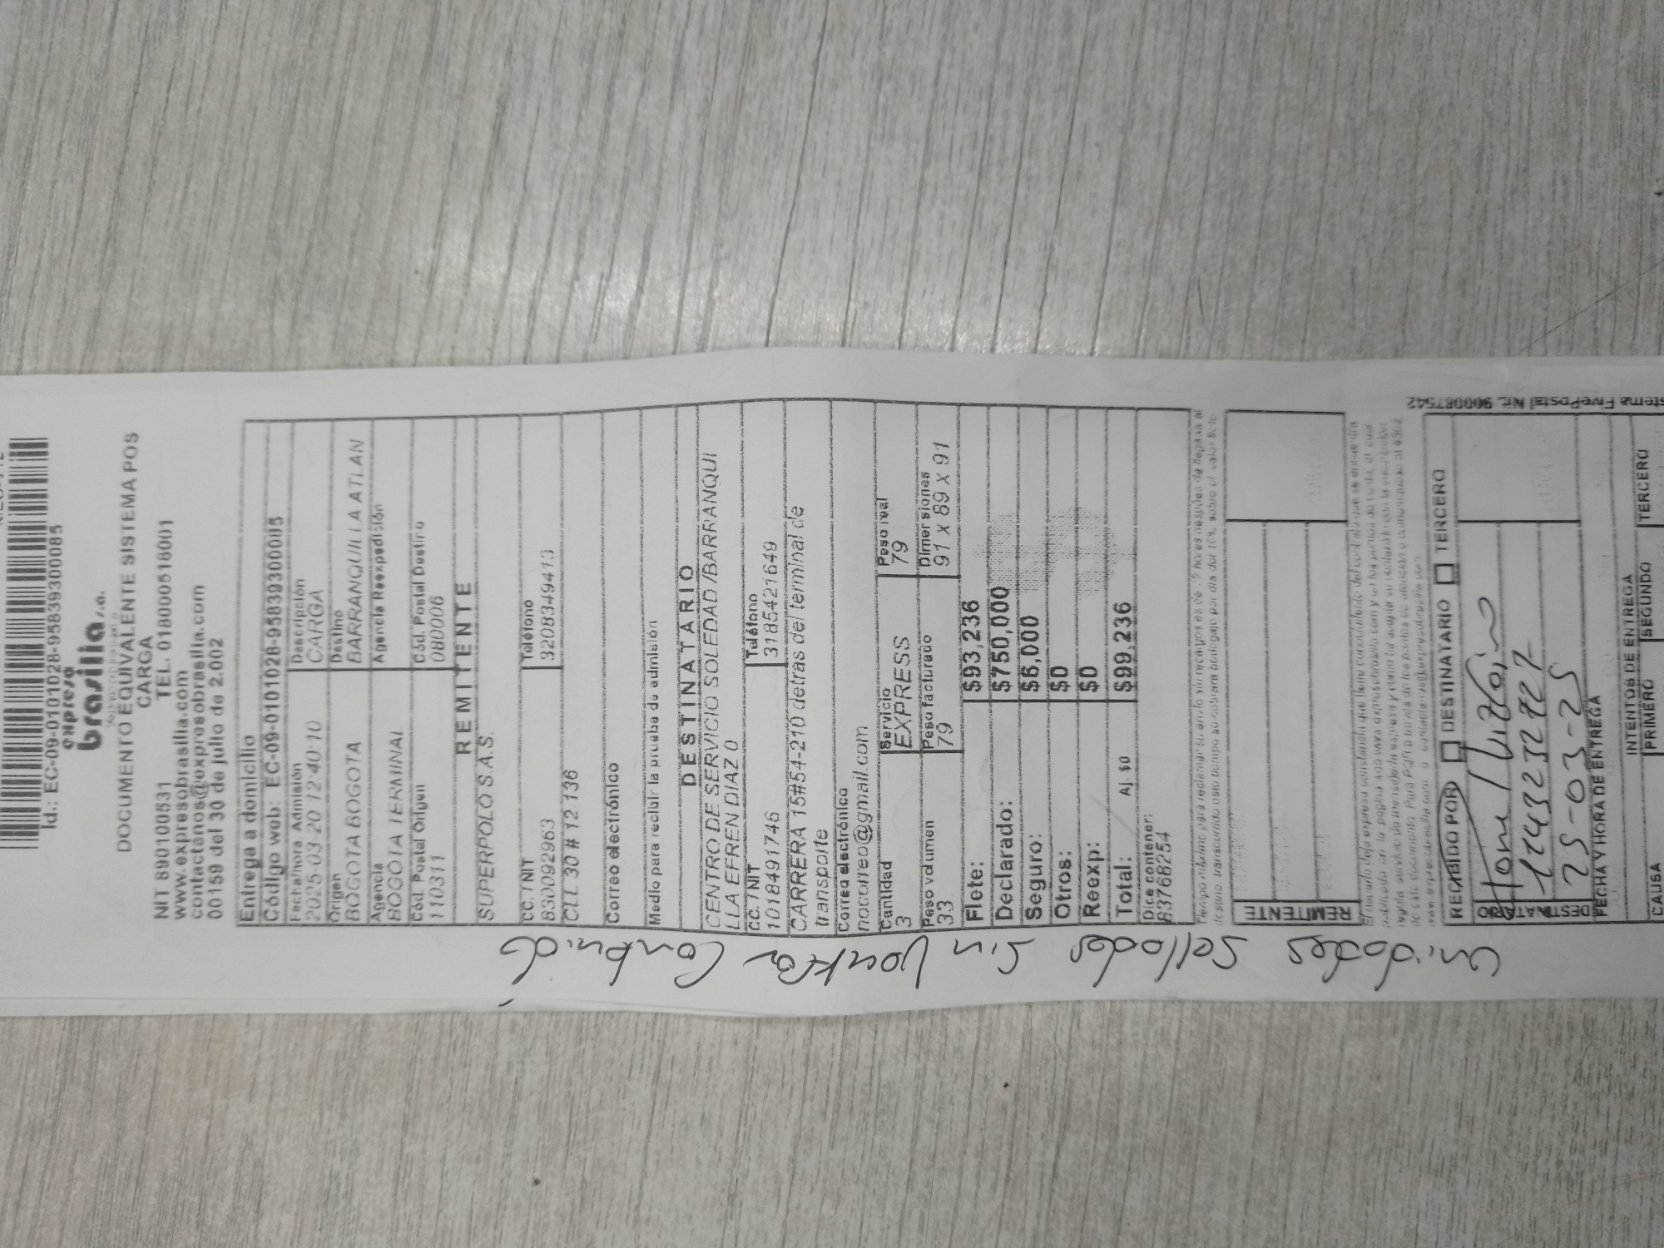 Id.: EC-09-0101028-95839300085
expreso
brasilia s.a.
DOCUMENTO EQUIVALENTE SISTEMA POS
CARGA
NIT 890100531 TEL. 018000518001
www.expresobrasilia.com
contactenos@expresobrasilia.com
00159 del 30 de julio de 2.002
Entrega a domicilio
Código web: EC-09-0101028-95839300085
Fecha/hora Admisión Descripción
2025-03-20 12:40:10 CARGA
Origen Destino
BOGOTA BOGOTA BARRANQUILLA ATLAN
Agencia Agencia Reexpedición
BOGOTA TERMINAL
Cod. Postal Origen Cód. Postal Destino
110311 080006
REMITENTE
SUPERPOLO S.A.S.
CC. / NIT Teléfono
830092963 3208349413
CLL 30 # 12 136
Correo electrónico
Medio para recibir la prueba de admisión
DESTINATARIO
CENTRO DE SERVICIO SOLEDAD /BARRANQUI
LLA EFREN DIAZ 0
CC. / NIT Teléfono
1018491746 3185421649
CARRERA 15#54-210 detras del terminal de
transporte
Correo electrónico
nocorreo@gmail.com
Cantidad Servicio Peso real
3 EXPRESS 79
Peso volumen Peso facturado Dimensiones
33 79 91 x 89 x 91
Flete: $93,236
Declarado: $750,000
Seguro: $6,000
Otros: $0
Reexp: $0
Total: Aj. $0 $99,236
Dice contener:
83768254
REMITENTE
RECIBIDO POR DESTINATARIO TERCERO
DESTINATARIO
25-03-25
FECHA Y HORA DE ENTREGA
INTENTOS DE ENTREGA
CAUSA PRIMERO SEGUNDO TERCERO
stema FivePostal Nit. 900087542
unidades selladas sin verificar Contenido